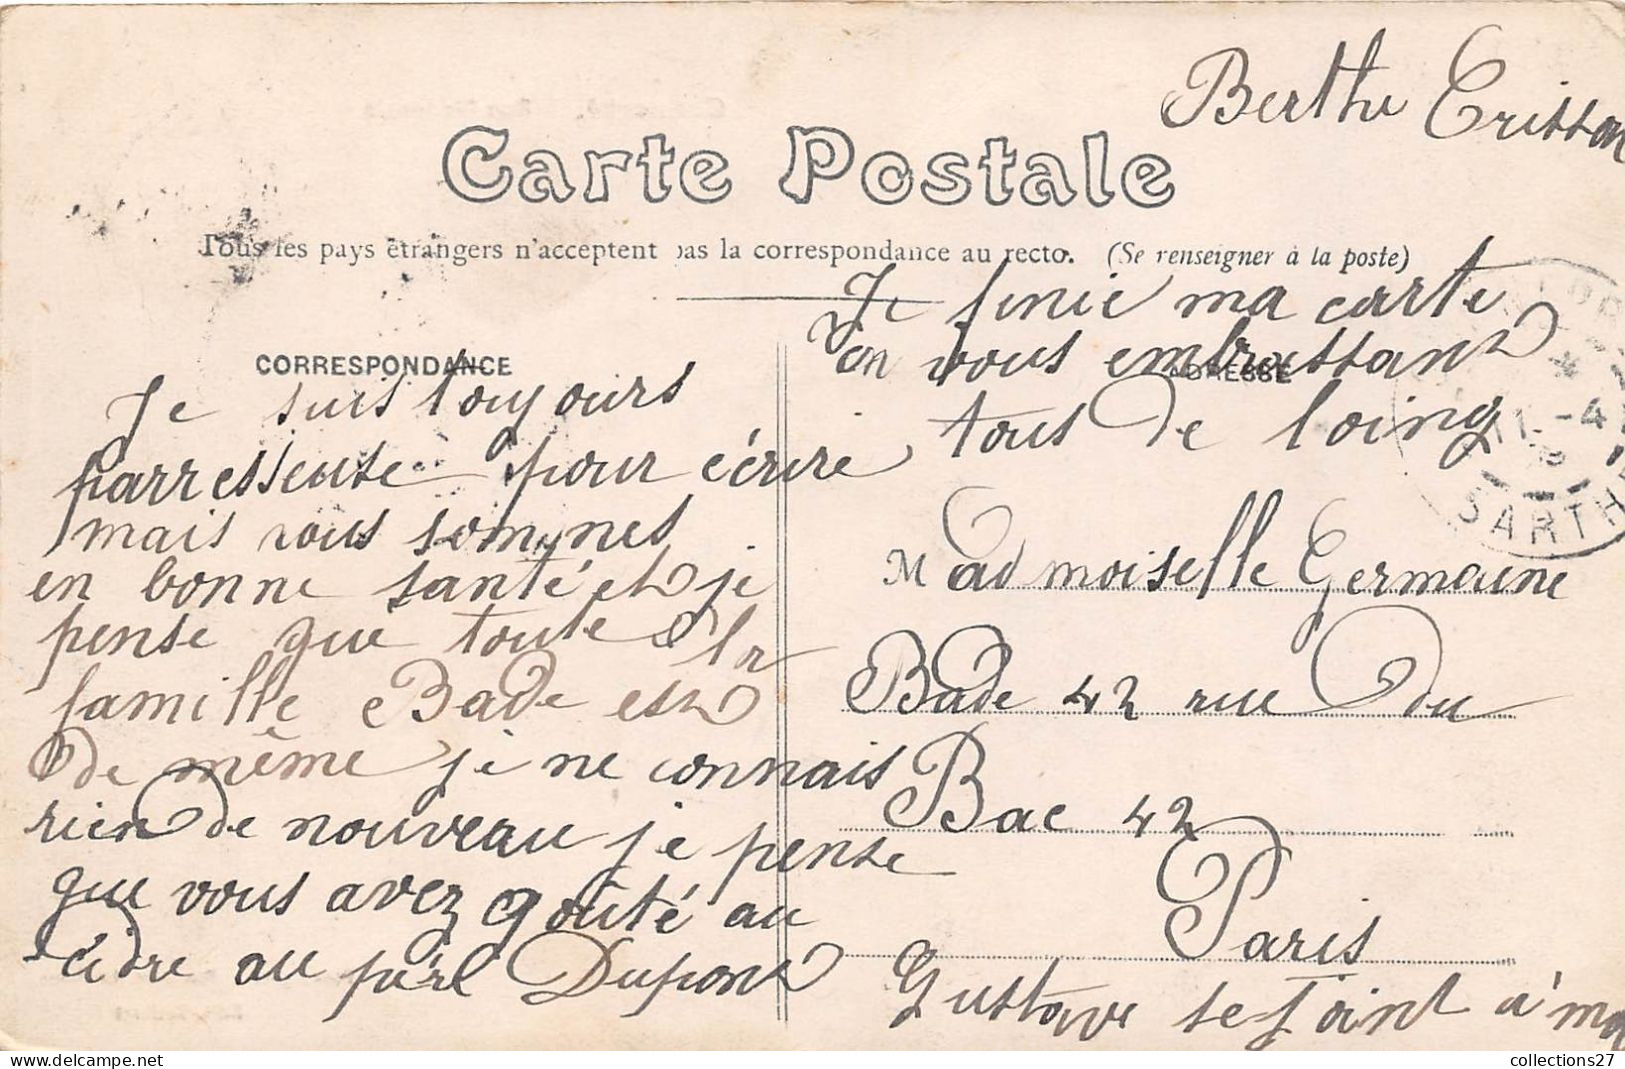 Berthe Crisson
Carte Postale
Tous les pays étrangers n'acceptent pas la correspondance au recto. (Se renseigner à la poste)
CORRESPONDANCE
Je suis toujours
parresseuse pour écrire
mais nous sommes
en bonne santé et je
pense que toute la
famille Bade est
de même je ne connais
rien de nouveau je pense
que vous avez goûté au
cidre au père Dupont
Je finie ma carte
en vous embrassant
ADRESSE
tous de loing
Madmoiselle Germaine
Bade 42 rue du
Bac 42
Paris
Gustave se joint à ma
11 -4
SARTHE
collections27